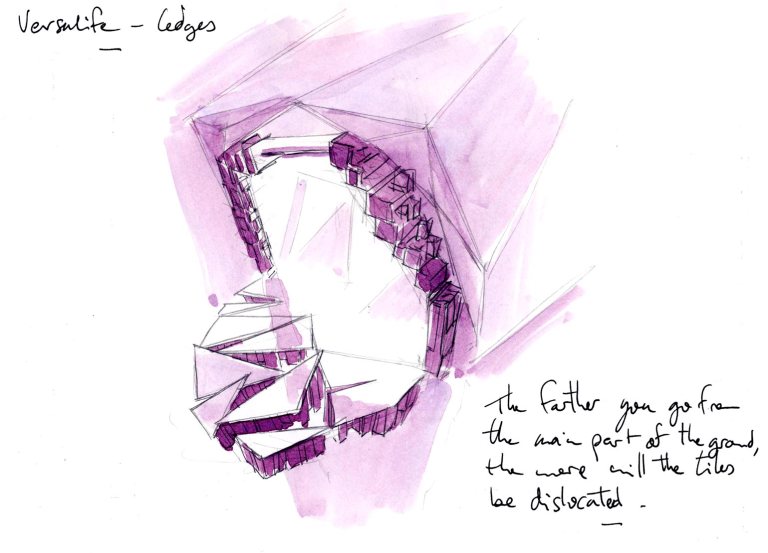 Versalife - Ledges
The farther you go from
the main part of the ground,
the more will the tiles
be dislocated.